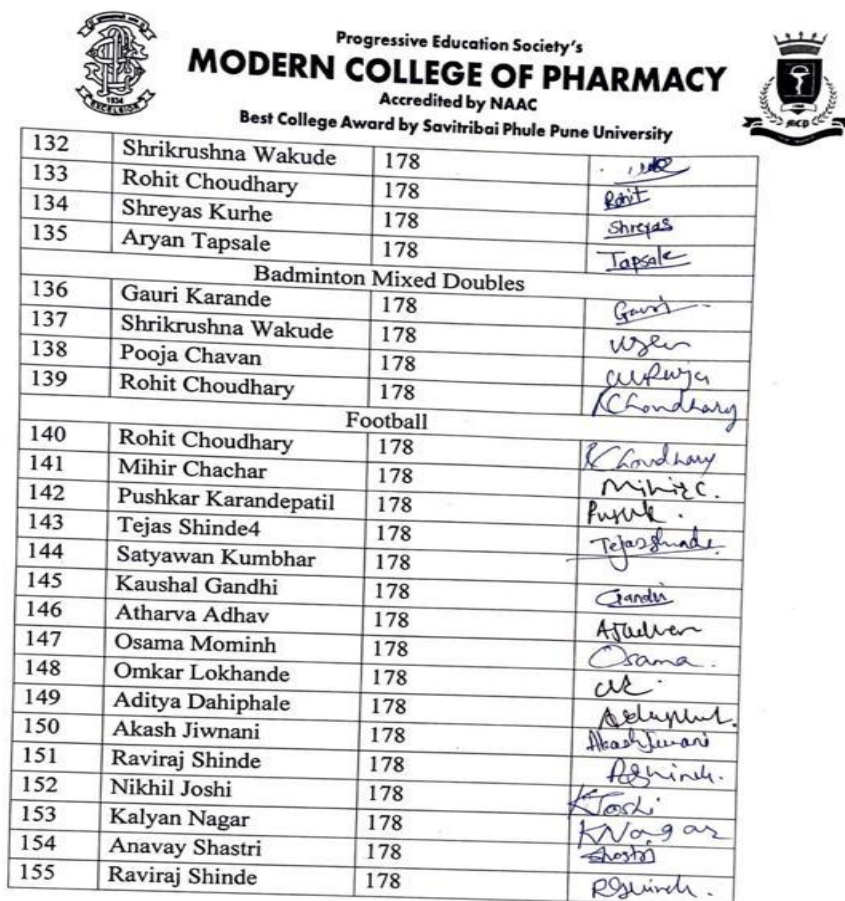 Progressive Education Society's
MODERN COLLEGE OF PHARMACY
Accredited by NAAC
Best College Award by Savitribai Phule Pune University
1934
EXCELSIOR
MCP
132 Shrikrushna Wakude 178
133 Rohit Choudhary 178 Rohit
134 Shreyas Kurhe 178 Shreyas
135 Aryan Tapsale 178 Tapsale
Badminton Mixed Doubles
136 Gauri Karande 178 Gauri
137 Shrikrushna Wakude 178
138 Pooja Chavan 178
139 Rohit Choudhary 178 RChoudhary
Football
140 Rohit Choudhary 178 RChoudhary
141 Mihir Chachar 178 Mihir C.
142 Pushkar Karandepatil 178
143 Tejas Shinde4 178 Tejas Shinde
144 Satyawan Kumbhar 178
145 Kaushal Gandhi 178 Gandhi
146 Atharva Adhav 178
147 Osama Mominh 178 Osama
148 Omkar Lokhande 178
149 Aditya Dahiphale 178
150 Akash Jiwnani 178 Akash Jiwnani
151 Raviraj Shinde 178
152 Nikhil Joshi 178 Joshi
153 Kalyan Nagar 178 KNagar
154 Anavay Shastri 178 Shastri
155 Raviraj Shinde 178